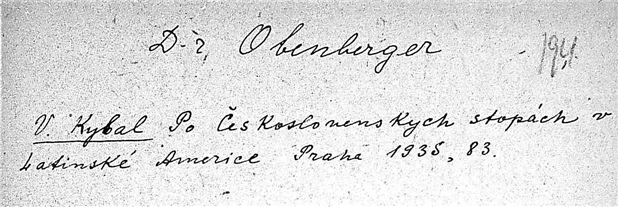 D-r, Obenberger
1941.
V. Kybal Po Československych stopách v
Latinské Americe Praha 1935, 83.